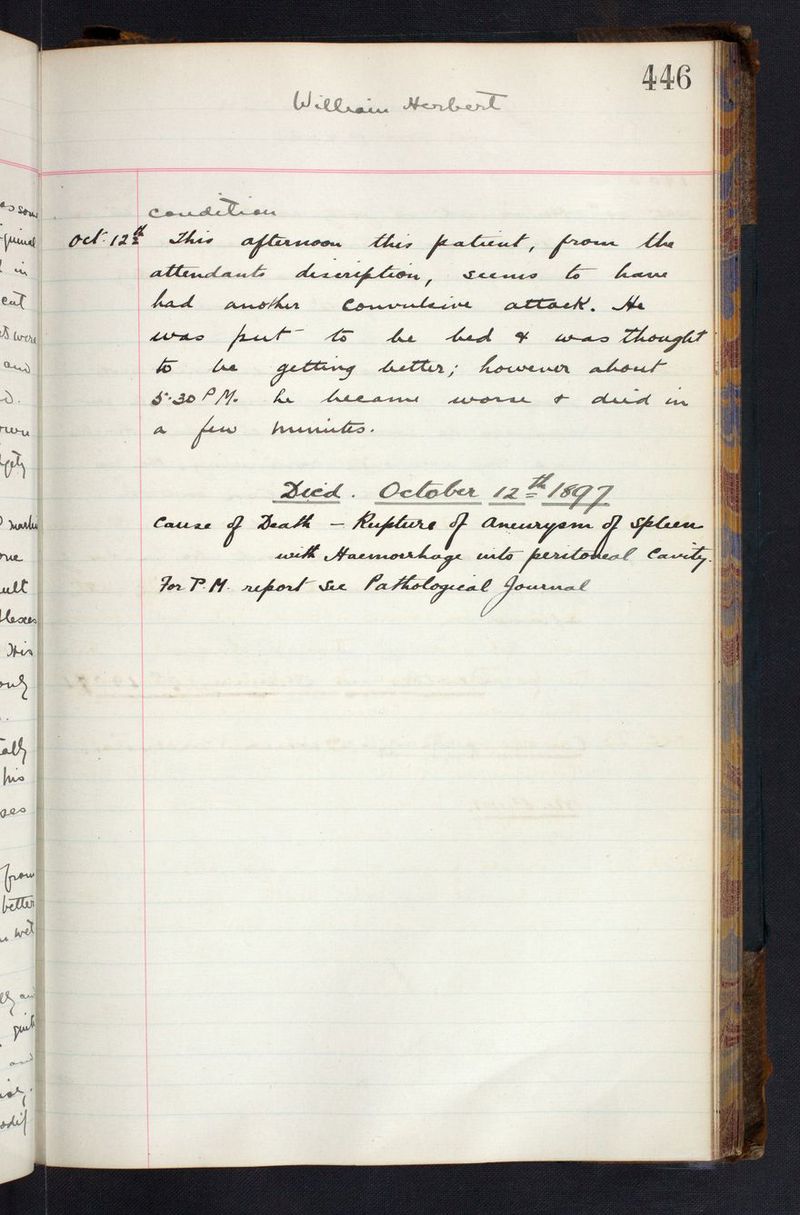 446
William Herbert
condition
Oct. 12th This afternoon this patient, from the
attendants discription, seems to have
had another convulsive attack. He
was put to be bed & was thought
to be getting better; however about
5.30 P.M. he became worse & died in
a few minutes.
Died. October 12th 1897
Cause of Death – Rupture of Aneurysm of Spleen
with Haemorrhage into peritoneal Cavity.
For P.M. report See Pathological Journal